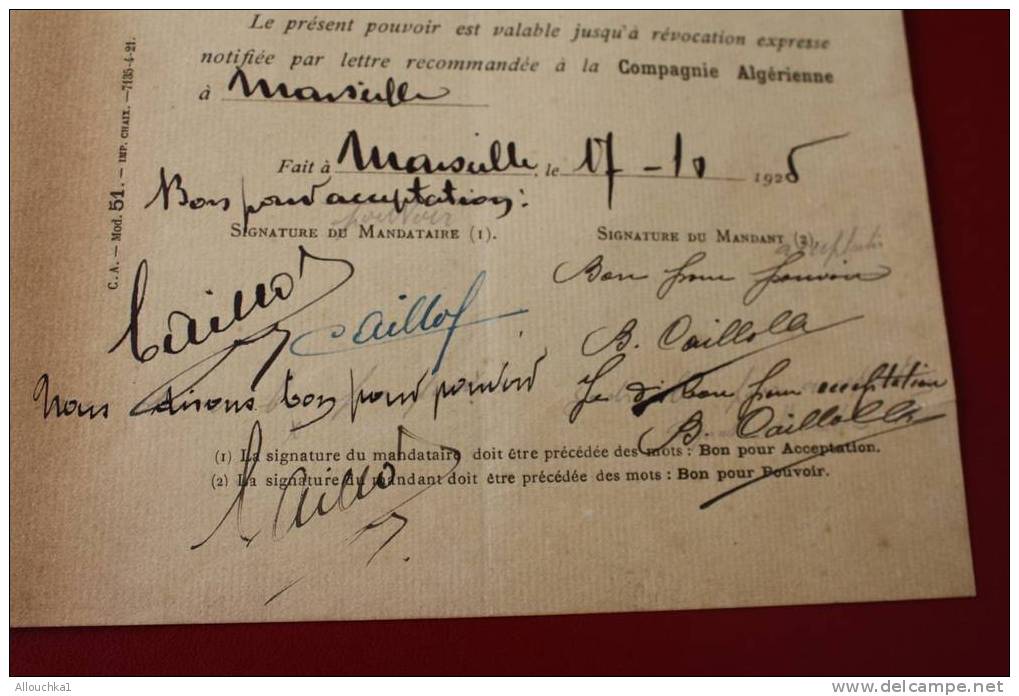 Le présent pouvoir est valable jusqu'à révocation expresse
notifiée par lettre recommandée à la Compagnie Algérienne
à Marseille
Fait à Marseille, le 17 - 10 1925
Bon pour acceptation :
pouvoir
SIGNATURE DU MANDATAIRE (1).
SIGNATURE DU MANDANT (2).
acceptation
Bon pour pouvoir
Caillol
Caillol
B. Caillolla
Nous disons bon pour pouvoir
Je dis bon pour acceptation
B. Caillolla
(1) La signature du mandataire doit être précédée des mots : Bon pour Acceptation.
(2) La signature du mandant doit être précédée des mots : Bon pour Pouvoir.
Caillol
C. A. — Mod. 51. — IMP. CHAIX. — 7135-4-21.
Allouchka1
www.delcampe.net